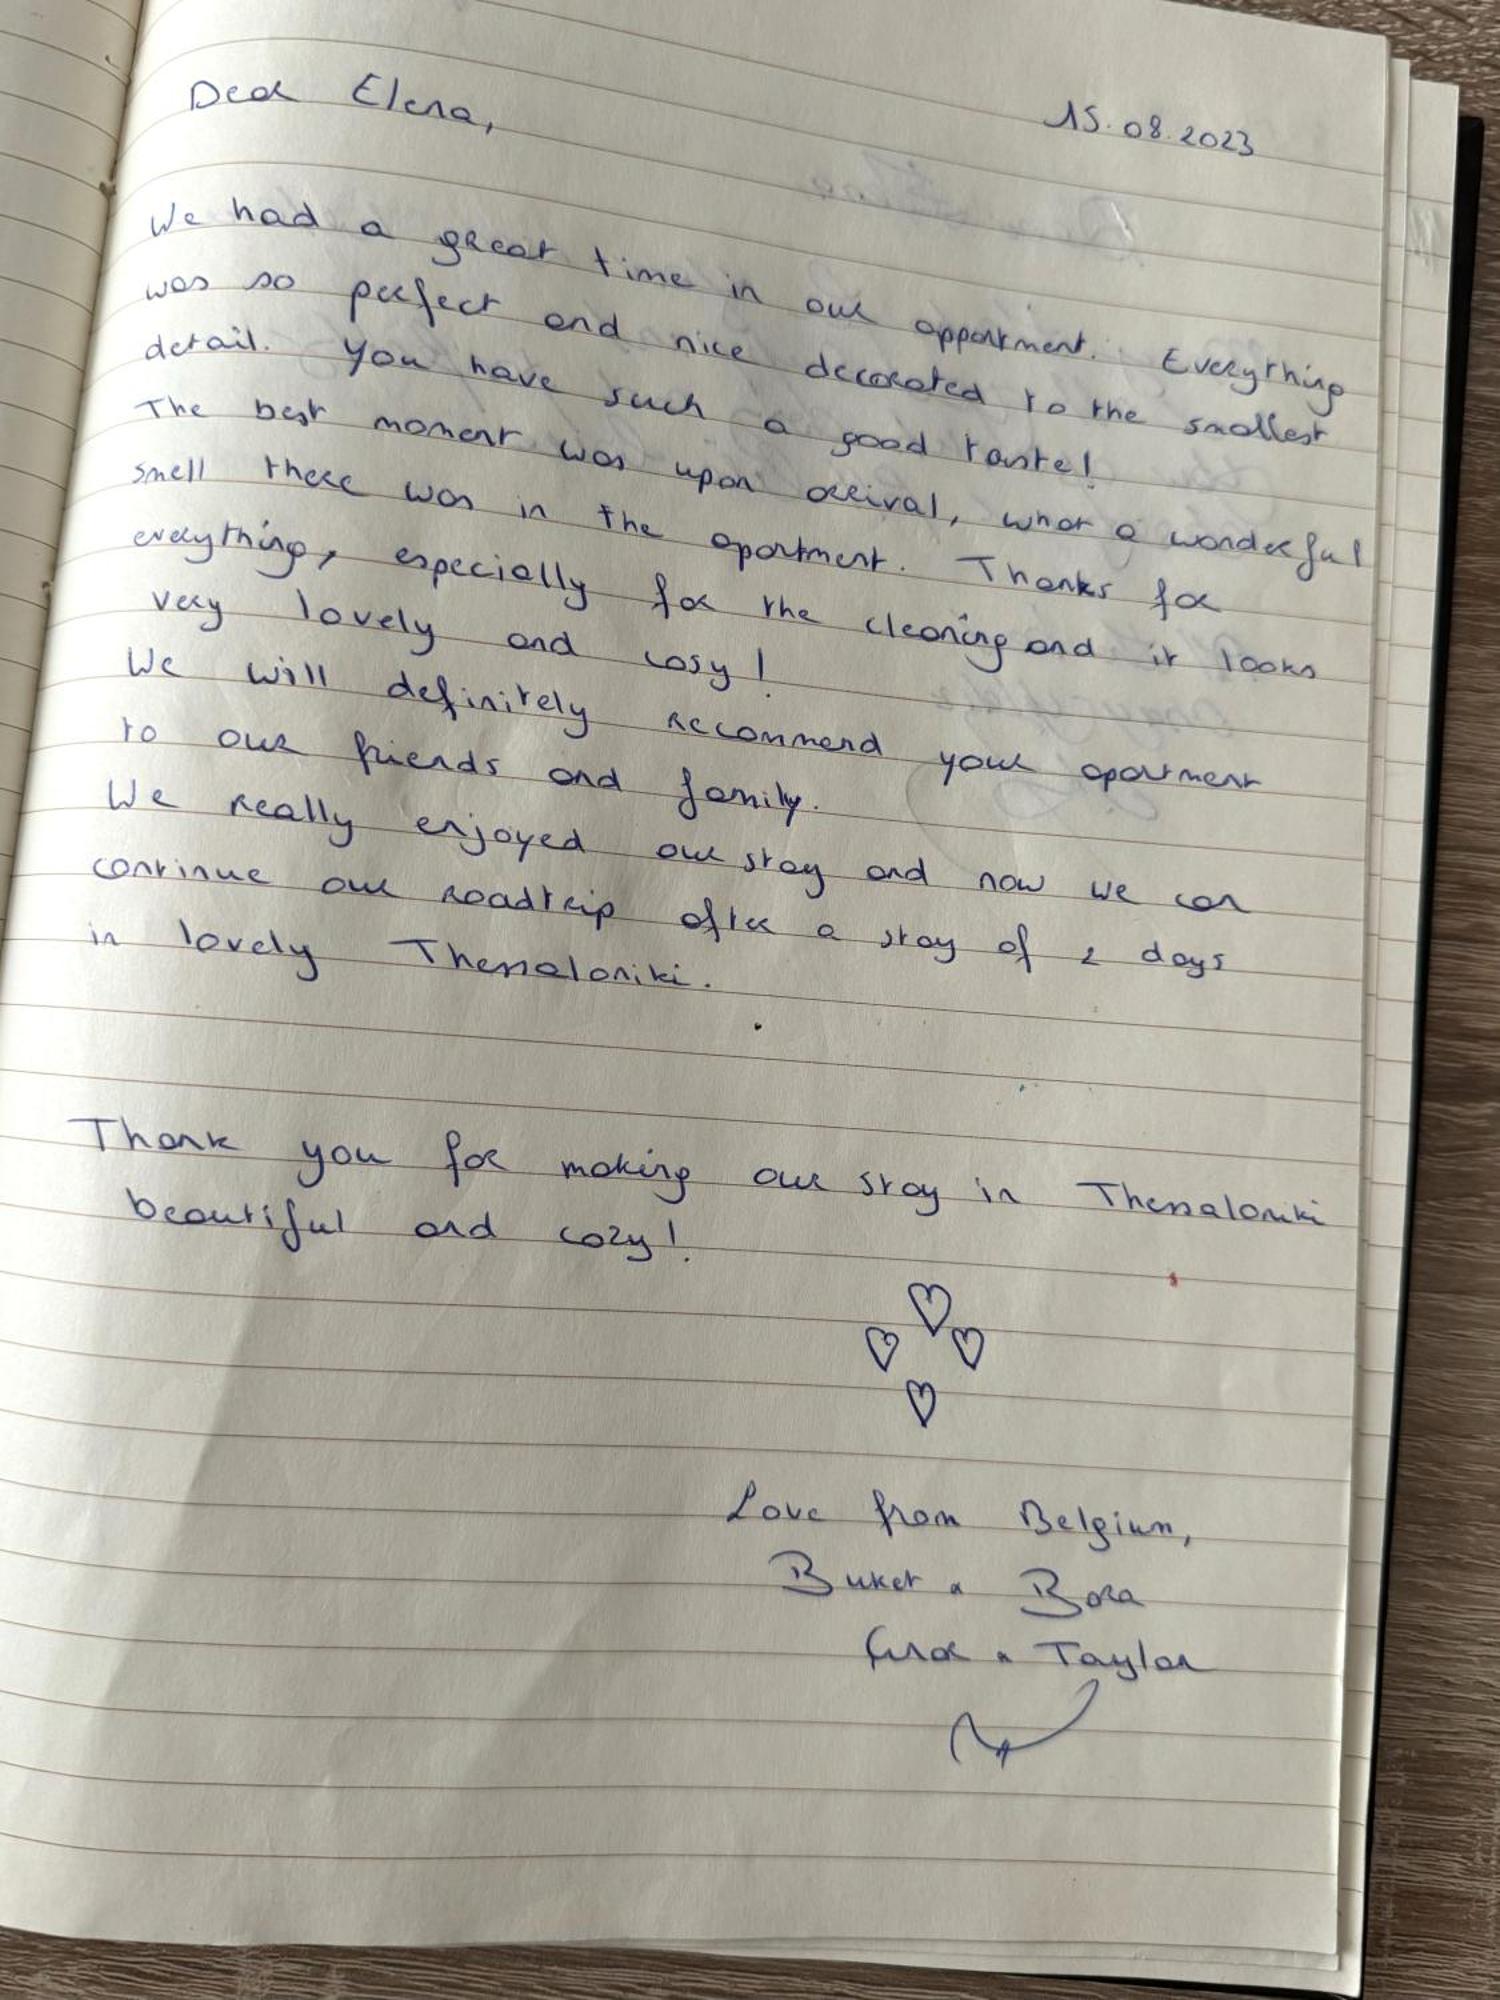 Dear Elena,
15.08.2023
We had a great time in our appartment. Everything
was so perfect and nice decorated to the smallest
detail. You have such a good taste!
The best moment was upon arrival, what a wonderful
smell there was in the apartment. Thanks for
everything, especially for the cleaning and it looks
very lovely and cosy!
We will definitely recommend your apartment
to our friends and family.
We really enjoyed our stay and now we can
continue our roadtrip after a stay of 2 days
in lovely Thessaloniki.
Thank you for making our stay in Thessaloniki
beautiful and cozy!
Love from Belgium,
Buket & Bora
& Taylor